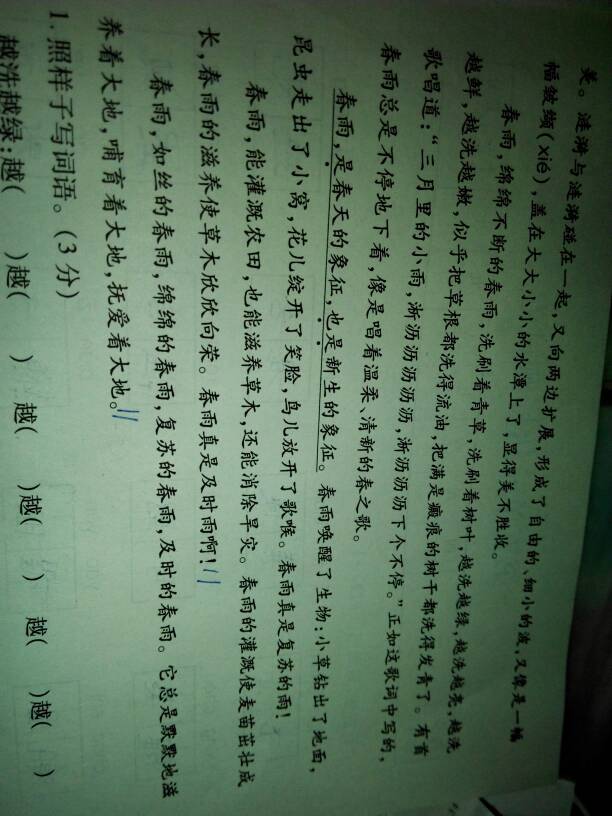 美。涟漪与涟漪碰在一起，又向两边扩展，形成了自由的、细小的波，又像是一幅
幅皱缬(xié)，盖在大大小小的水潭上了，显得美不胜收。
春雨，绵绵不断的春雨，洗刷着青草，洗刷着树叶，越洗越绿，越洗越亮，越洗
越鲜，越洗越嫩，似乎把草根都洗得流油，把满是癞痕的树干都洗得发青了。有首
歌唱道：“三月里的小雨，淅沥沥沥沥沥，淅沥沥沥下个不停。”正如这歌词中写的，
春雨总是不停地下着，像是唱着温柔、清新的春之歌。
春雨，是春天的象征，也是新生的象征。春雨唤醒了生物：小草钻出了地面，
昆虫走出了小窝，花儿绽开了笑脸，鸟儿放开了歌喉。春雨真是复苏的雨！
春雨，能灌溉农田，也能滋养草木，还能消除旱灾。春雨的灌溉使麦苗茁壮成
长，春雨的滋养使草木欣欣向荣。春雨真是及时雨啊！
春雨，如丝的春雨，绵绵的春雨，复苏的春雨，及时的春雨。它总是默默地滋
养着大地，哺育着大地，抚爱着大地。
1. 照样子写词语。（3分）
越洗越绿：越(　　)越(　　)　越(　　)越(　　)　越(　　)越(　　)